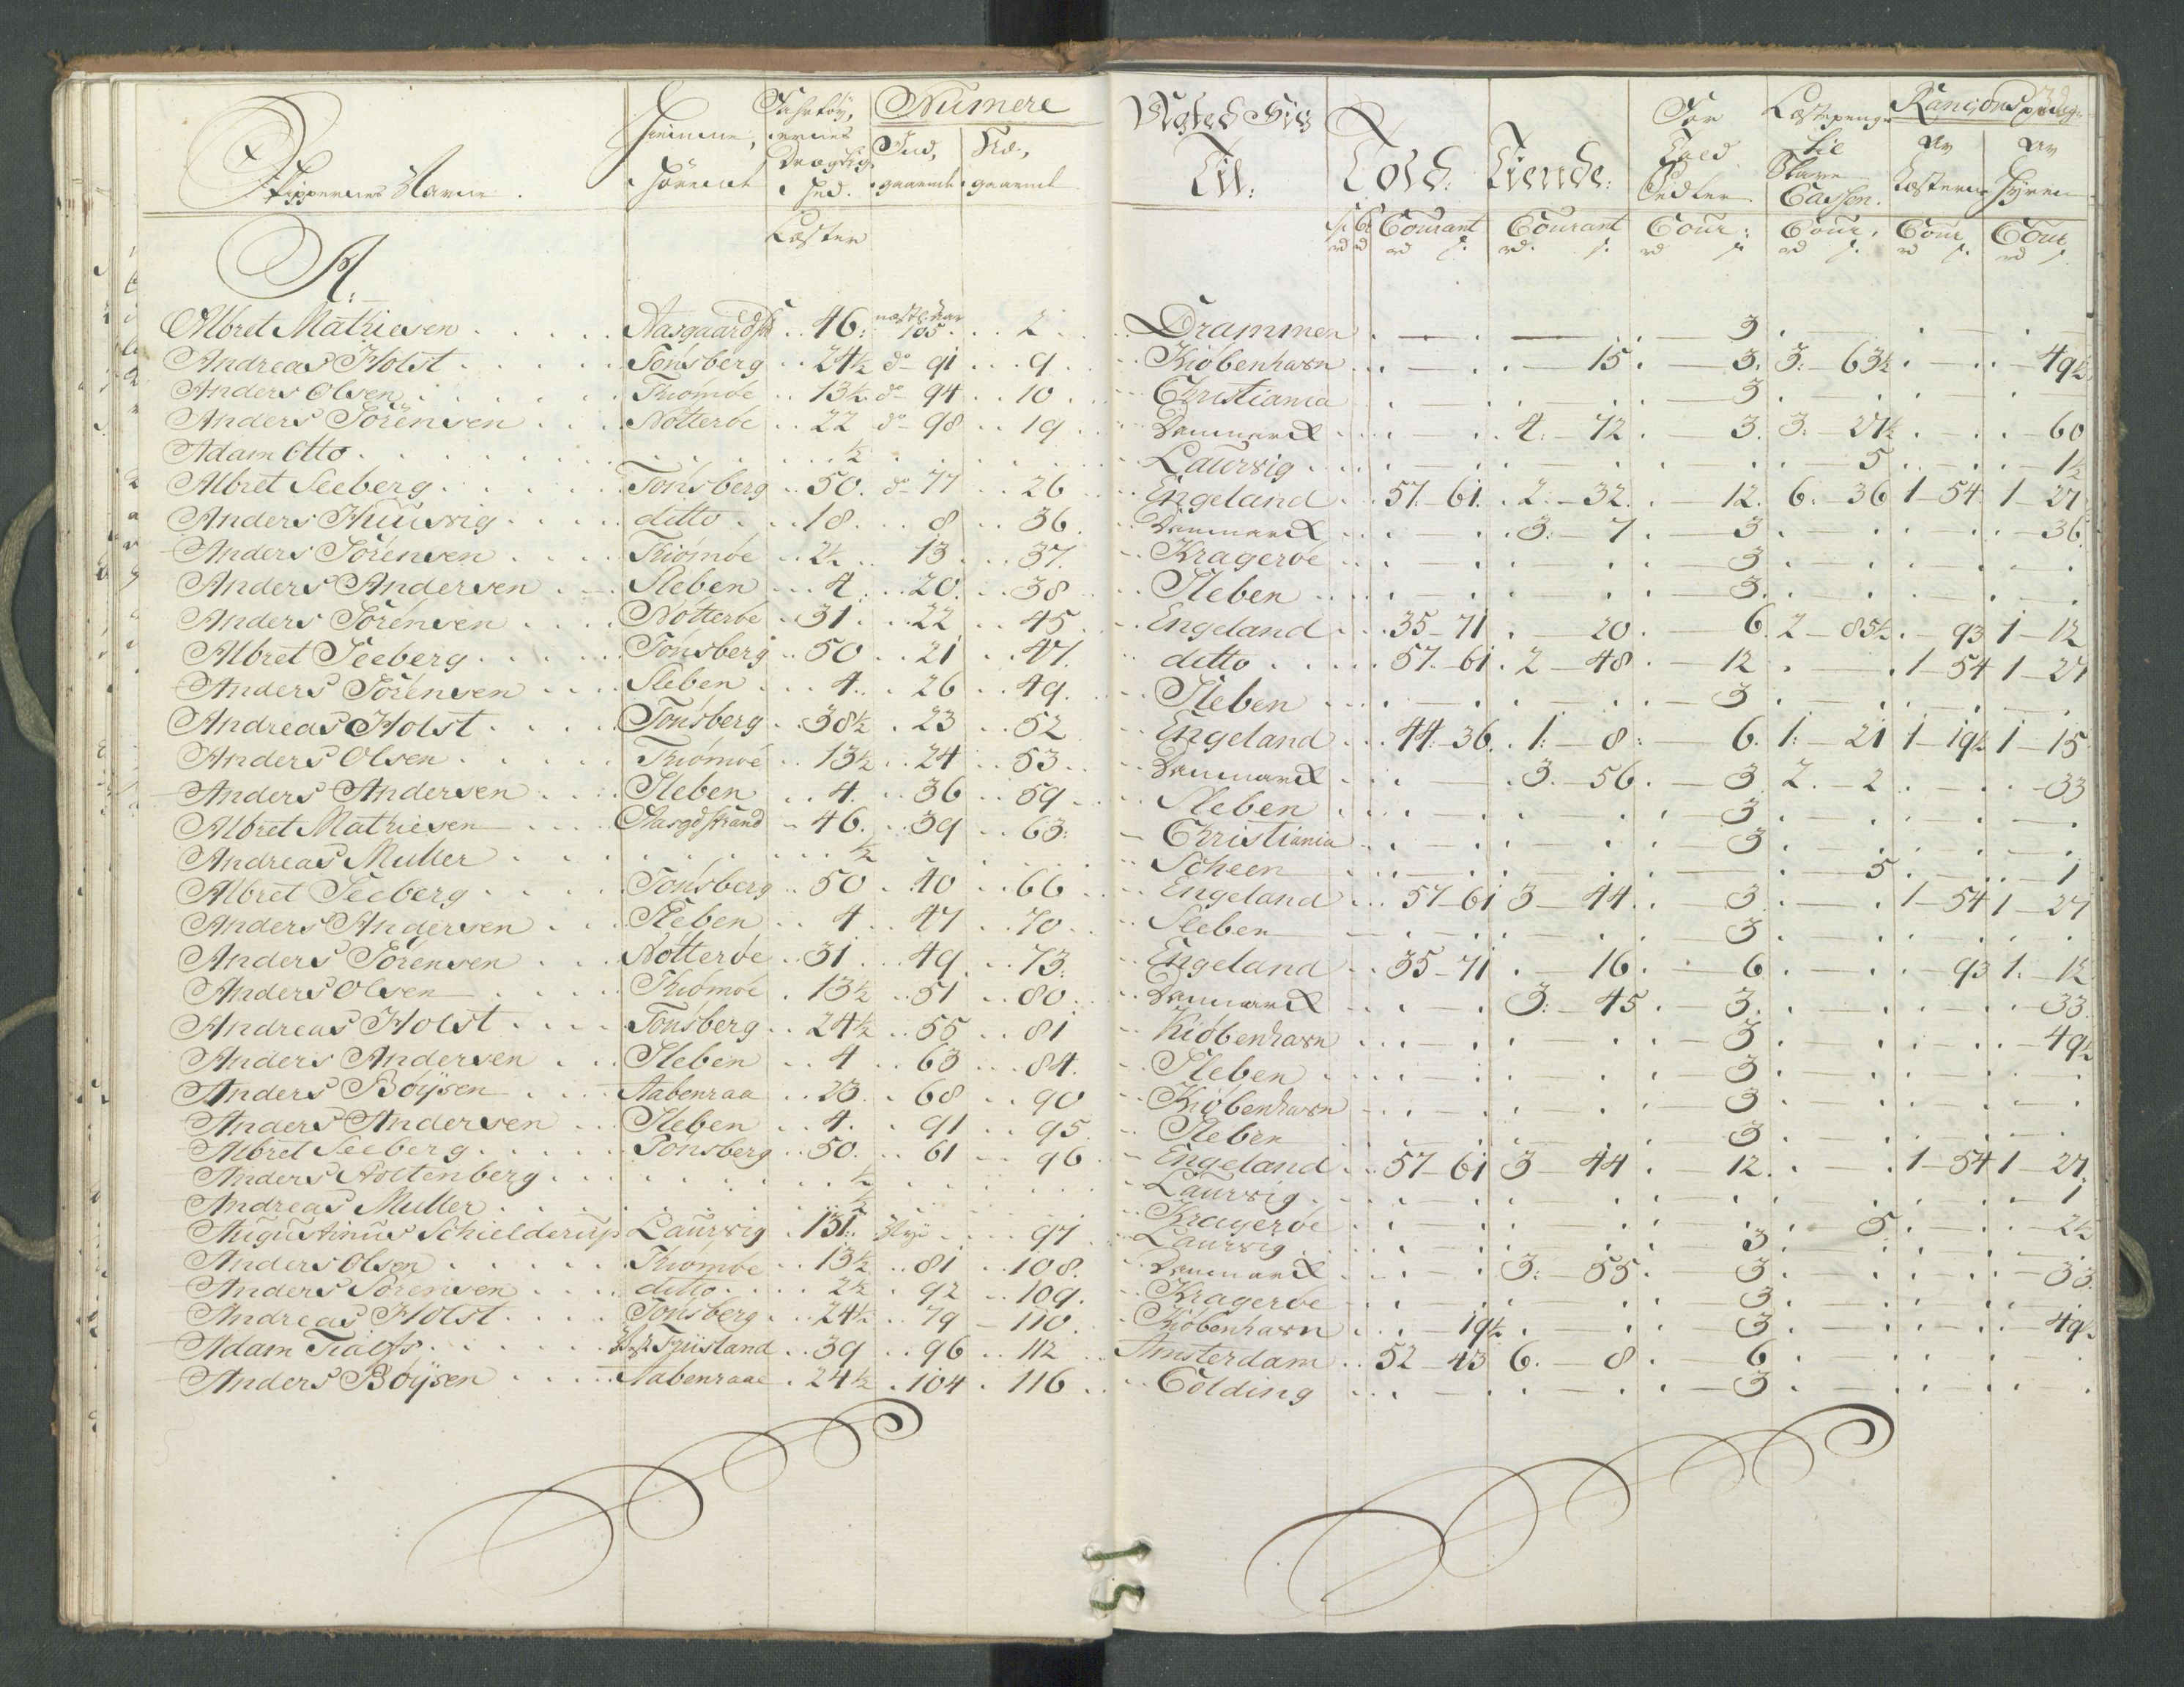 Skippernes Navne. Hiemme, hörende Fahrtöy, ernes Drægtig, hed. Numere Ind, gaaende Ud, gaaende
Læster
A:
Albret Mathiesen Aasgaards 46: næstl: aar 105. 2
Andreas Holst Tönsberg 24½ do 91 9
Anders Olsen Thiömöe 13½ do 94 10
Anders Sörensen Nötteröe 22 do 98 19
Adam Otto ½
Albret Seeberg Tönsberg 50. do 77 26
Anders Huusvig ditto 18 8 36
Anders Sörensen Thiömöe 2½ 13 37.
Anders Andersen Sleben 4 20. 38
Anders Sörensen Nötteröe 31 22 45
Albret Seeberg Tönsberg 50 21 47.
Anders Sörensen Sleben 4. 26 49.
Andreas Holst Tönsberg 38½ 23 52
Anders Olsen Thiömöe 13½ 24 53
Anders Andersen Sleben 4. 36 59
Albret Mathiesen Aasgdstrand 46. 39 63:
Andreas Muller ½
Albret Seeberg Tönsberg 50 40 66
Anders Andersen Sleben 4 47 70
Anders Sörensen Nötteröe 31 49 73:
Anders Olsen Thiömöe 13½ 51 80
Andreas Holst Tönsberg 24½ 55 81
Anders Andersen Sleben 4 63 84.
Anders Böysen Aabenraa 23 68 90
Anders Andersen Sleben 4. 91 95
Albret Seeberg Tönsberg 50. 61 96
Anders Holtenberg ½
Andreas Muller ½
Augustinus Schielderup Laurvig 131: Nye 97
Anders Olsen Thiömöe 13½ 81 108.
Anders Sörensen ditto 2½ 92 109.
Andreas Holst Tönsberg 24½ 79 110
Adam Tialfs Friisland 39 96 112
Anders Böysen Aabenraae 24½ 104 116
Til: Told: Tiende: For Told Sedler Læstepenge til Slave Cassen. Rançons penge Av Læsterne Av Hyren
Courant Courant Cour: Cour: Cour Cour
rd s. rd. s. rd s rd s. rd s. rd s.
Drammen 3
Kiöbenhavn 15 3. 3: 63½ 49½
Christiania 3
Danmarck 4. 72 3. 3. 27½ 60
Laurvig 5 1½
Engeland 57. 61. 2. 32. 12. 6. 36 1 54 1 27
Danmarck 3. 7 3 36.
Krageröe 3
Sleben 3.
Engeland 35 71 20 6. 2 85½ 93 1 12
ditto 57. 61. 2 48 12 1 54 1 27
Sleben 3
Engeland 44. 36. 1: 8 6. 1: 21 1 19½ 1 15
Danmarck 3. 56. 3 2. 2 33
Sleben 3
Christiania 3
Scheen 5 1
Engeland 57 61 3 44. 3 1 54 1 27
Sleben 3
Engeland 35 71 16. 6 93 1. 12
Danmarck 3: 45 3. 33
Kiöbenhavn 3 49½
Sleben 3
Kiöbenhavn 3
Sleben 3
Engeland 57 61 3 44 12. 1 54 1 27.
Laurvig 1
Krageröe 5 2½
Laurvig 3
Danmarck 3: 55. 3 33.
Krageröe 3
Kiöbenhavn 19½ 3 49½
Amsterdam 52 43 6. 8 6
Colding 3